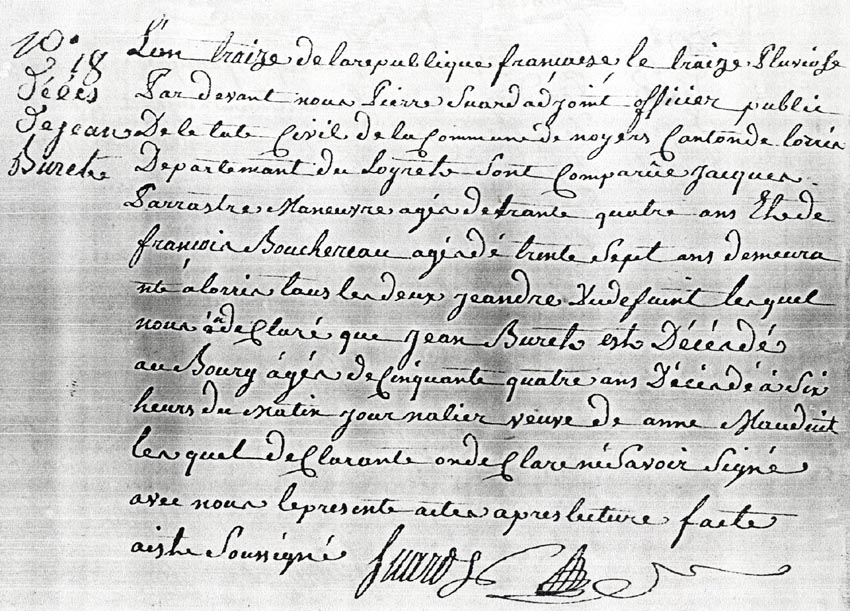 N°. 18
Décès
De jean
Buret
L'an traize de la republique francaise le traize Pluviose
Par devant nous Pierre Suard adjoint officier public
De le tate Civil de la Commune de noyers Canton de lorris
Departemant du Loyret Sont Comparüe jacques
Parrastre Maneuvre agés de trante quatre ans Et de
francois Bouchereau agés dé trinte Sept ans demeura
nte á lorris tous les deux jeandre Dudefunt lesquel
nous á declaré que jean Buret est Décédé
au Bourg ágés de Cinquante quatre ans Décédé á Six
heurs du Matin journalier veuve de anne Mauduit
lesquel de Clarante onde Clare né Savoir Signé
avec nous le presente actes apres lecture faite
aiste Soussigné Suard